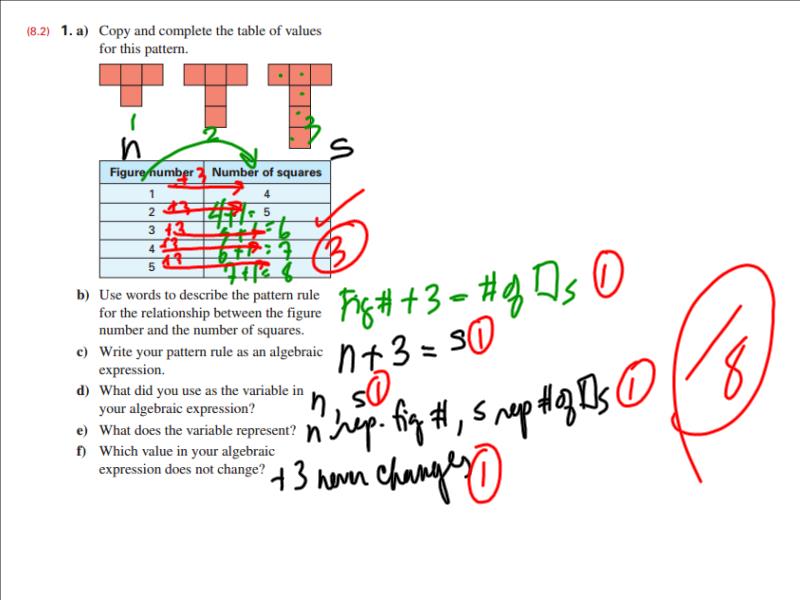 (8.2) 1. a) Copy and complete the table of values
for this pattern.
1 2 3
n s
Figure number Number of squares
+3
1 4
2 +3 4+1= 5
3 +3 5+1=6
4 +3 6+1=7
5 +3 7+1=8
3
b) Use words to describe the pattern rule
for the relationship between the figure
number and the number of squares.
Fig # + 3 = # of □s 1
c) Write your pattern rule as an algebraic
expression.
n + 3 = s 1
d) What did you use as the variable in
your algebraic expression?
n, s 1
e) What does the variable represent?
n rep. fig #, s rep # of □s 1
f) Which value in your algebraic
expression does not change?
+3 never changes 1
/8